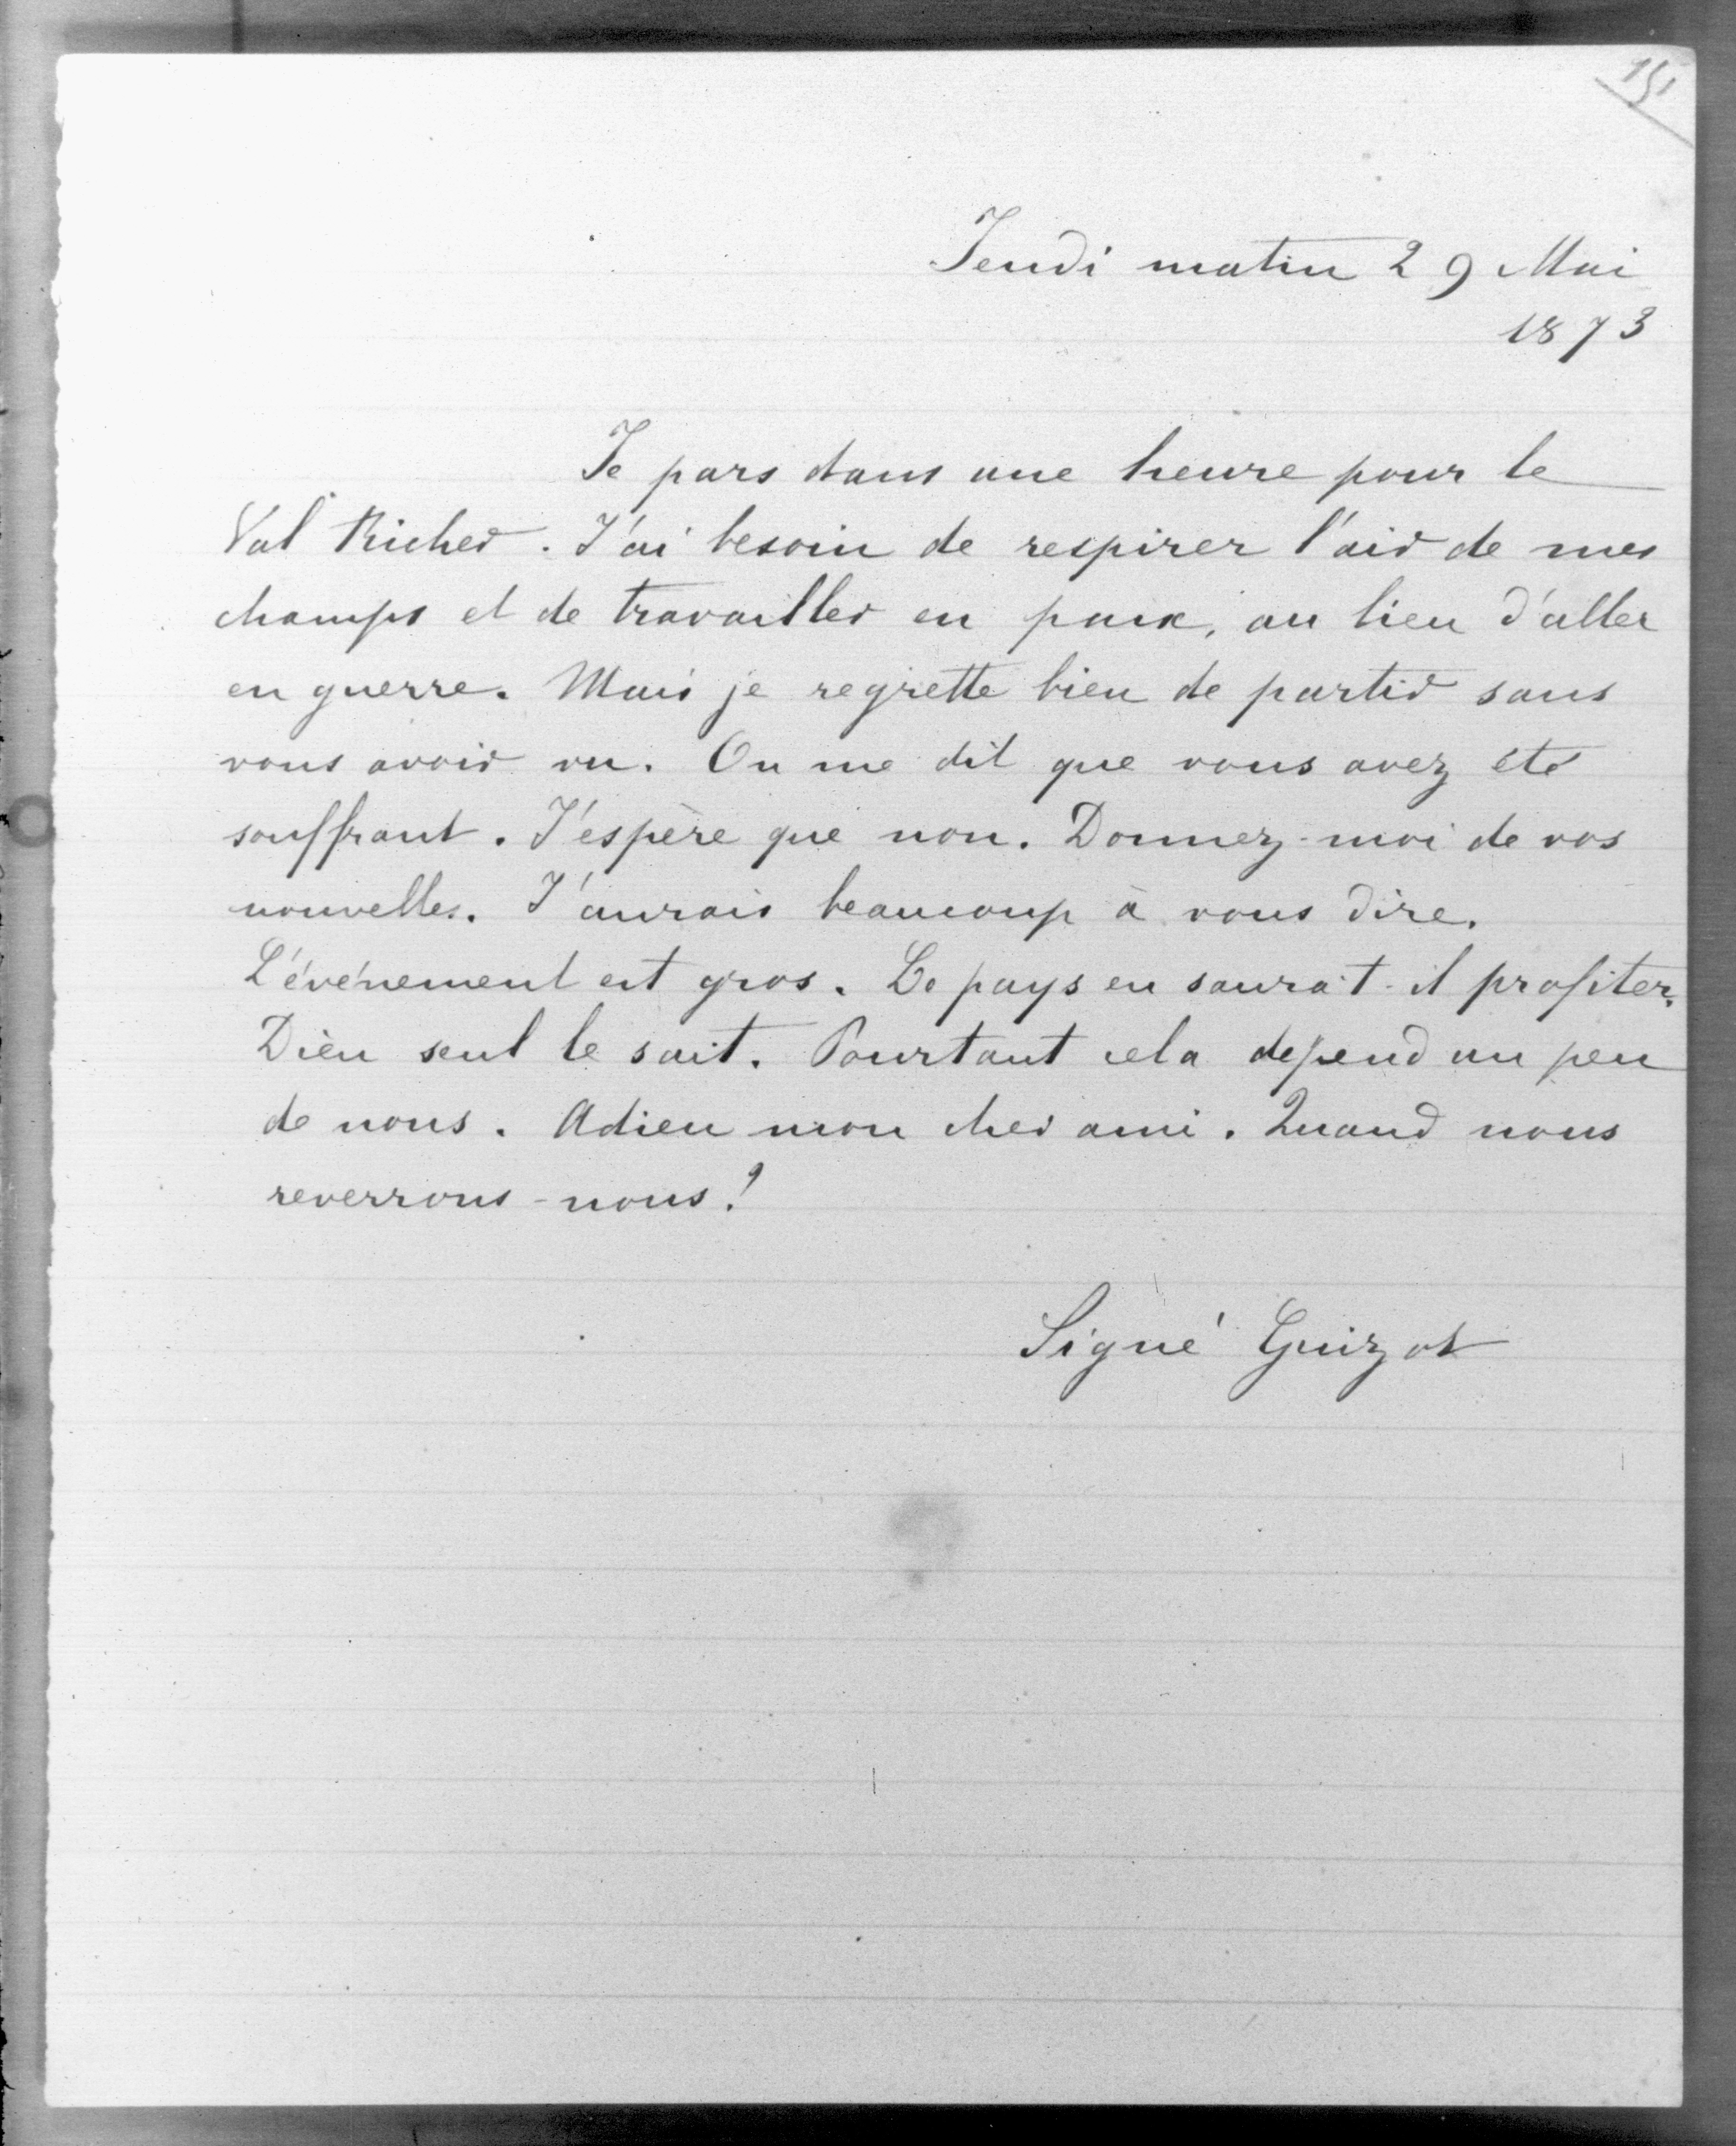 151
Jeudi matin 29 Mai
1873
Je pars dans une heure pour le
Val Richer. J'ai besoin de respirer l'air de mes
champs et de travailler en paix, au lieu d'aller
en guerre. Mais je regrette bien de partir sans
vous avoir vu. On me dit que vous avez été
souffrant. J'espère que non. Donnez-moi de vos
nouvelles. J'aurais beaucoup à vous dire.
L'événement est gros. Le pays en saura-t-il profiter.
Dieu seul le sait. Pourtant cela depend un peu
de nous. Adieu mon cher ami. Quand nous
reverrons-nous?
Signé Guizot